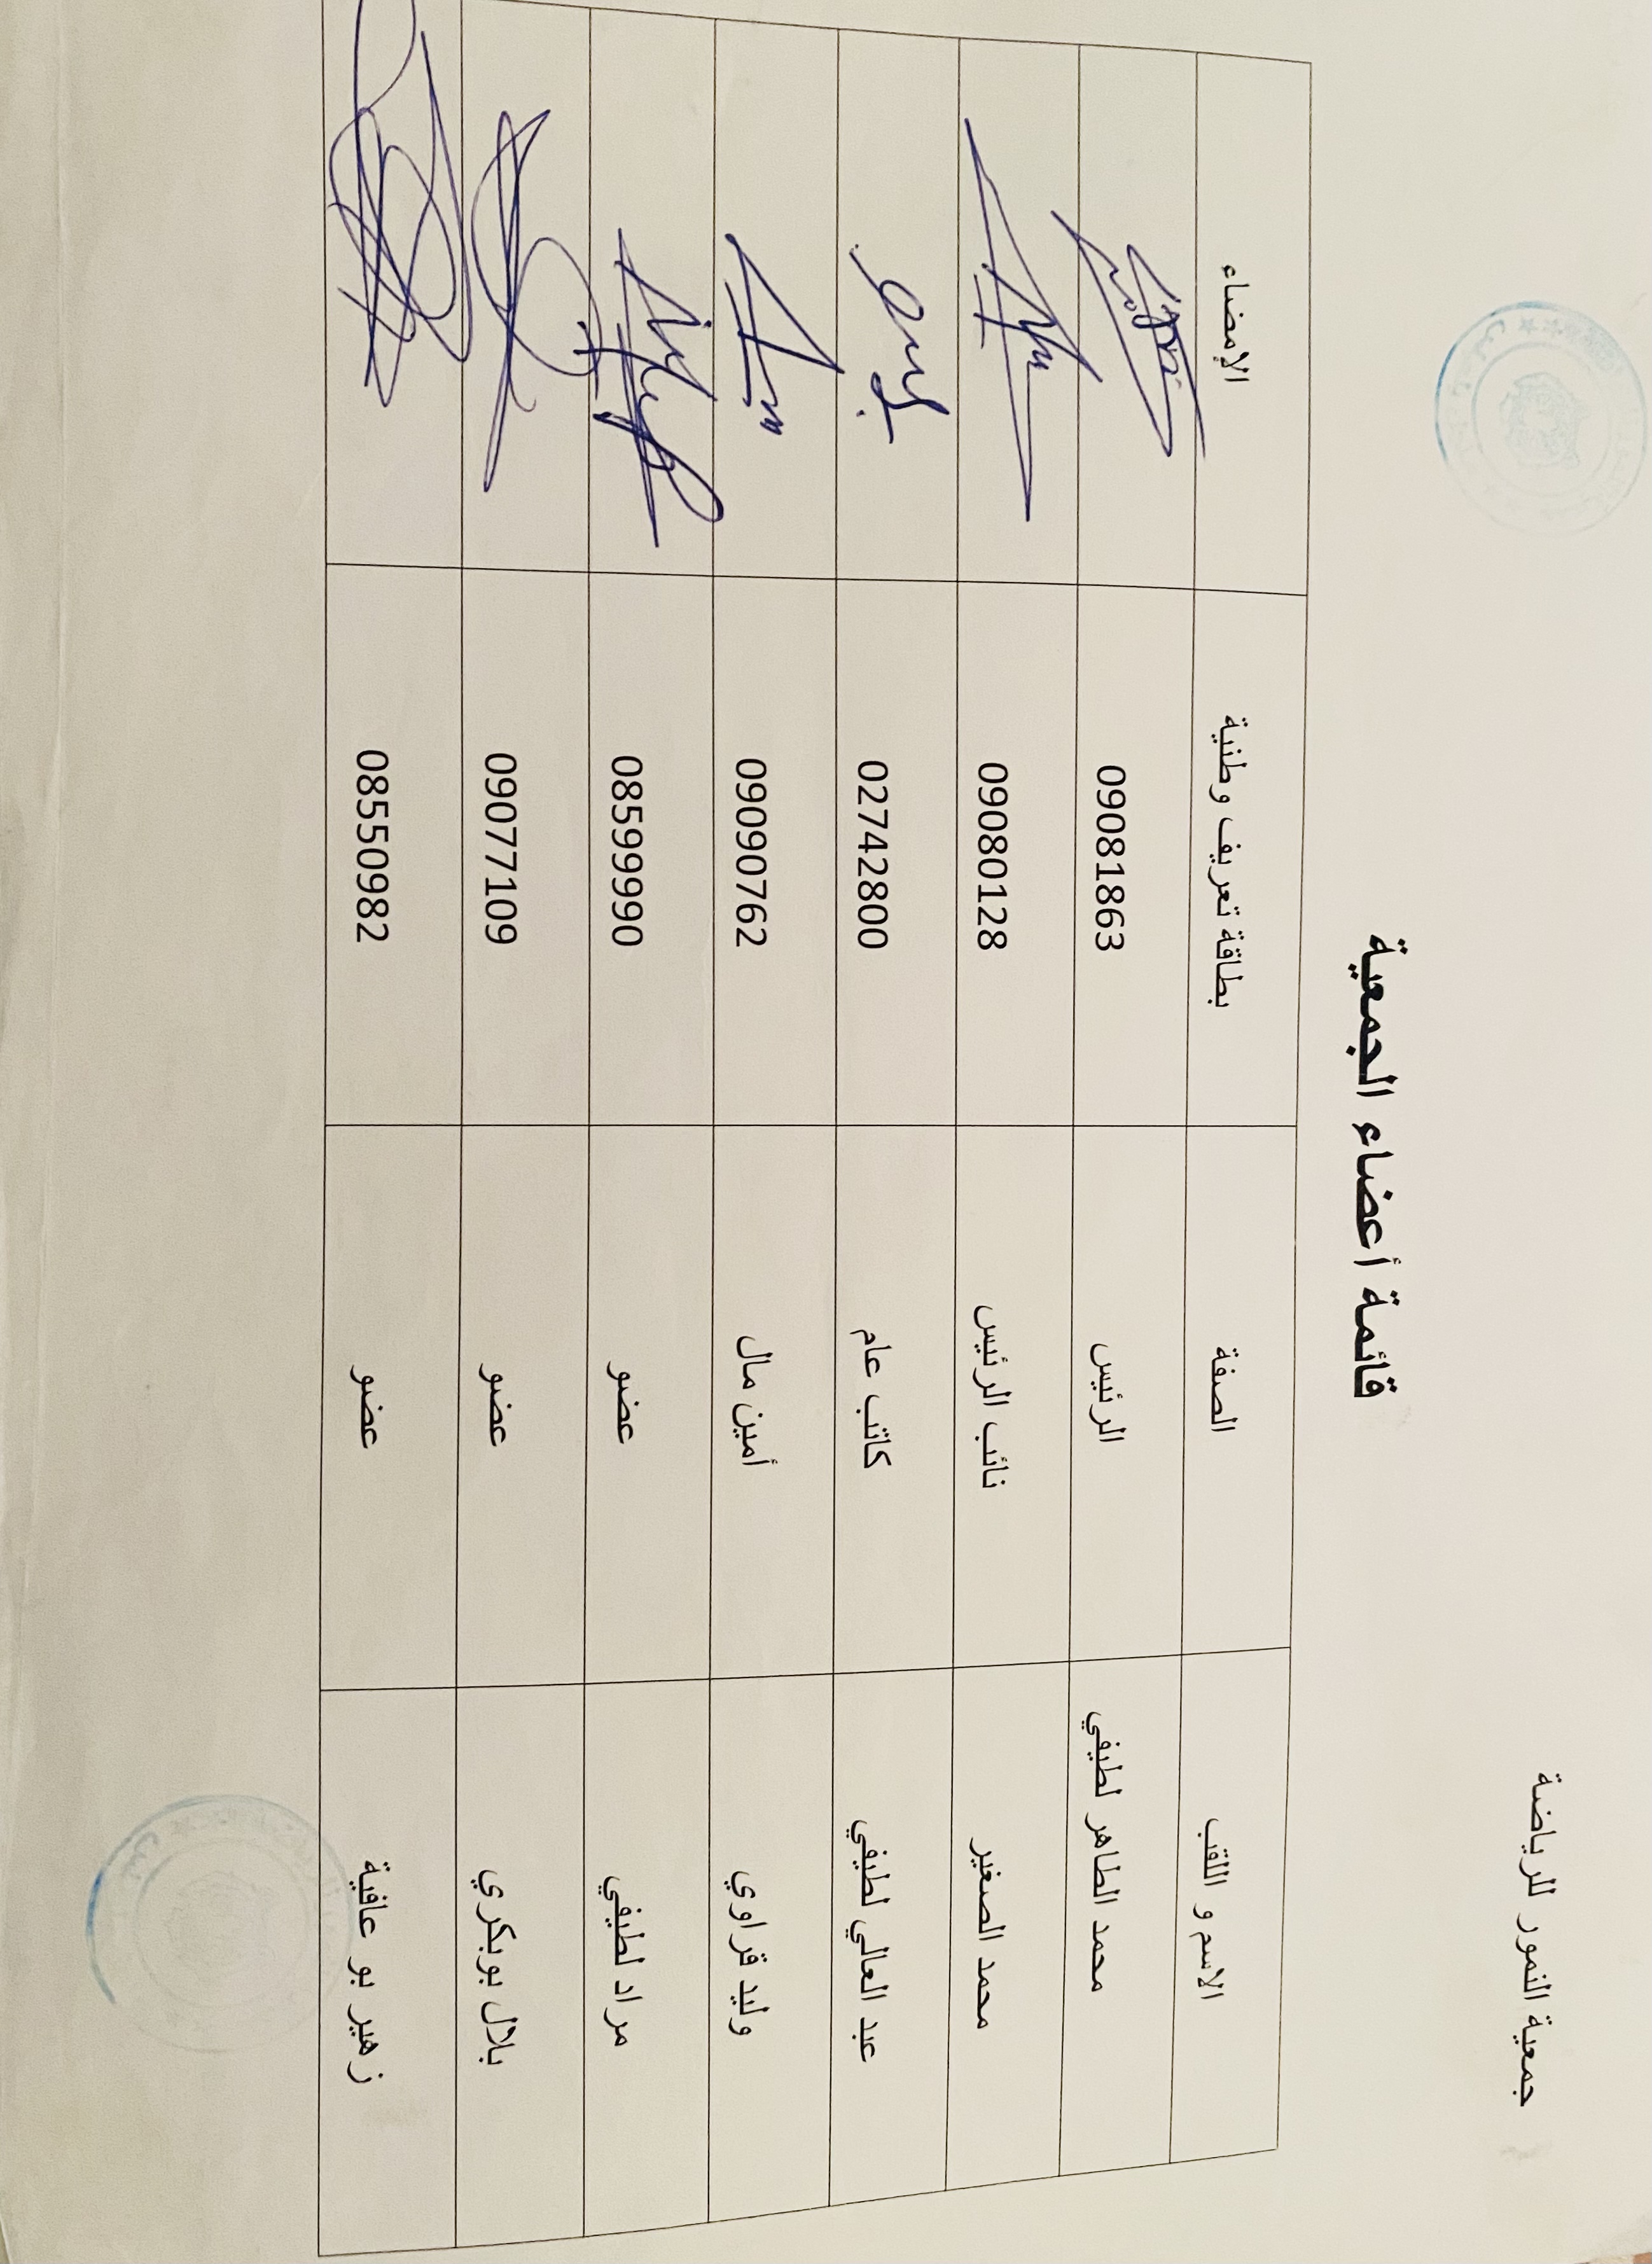 جمعية النمور للرياضة
قائمة أعضاء الجمعية
الاسم و اللقب الصفة بطاقة تعريف وطنية الإمضاء
محمد الطاهر لطيفي الرئيس 09081863
محمد الصغير نائب الرئيس 09080128
عبد العالي لطيفي كاتب عام 02742800
وليد قراوي أمين مال 09090762
مراد لطيفي عضو 08599990
بلال بوبكري عضو 09077109
زهير بو عافية عضو 08550982